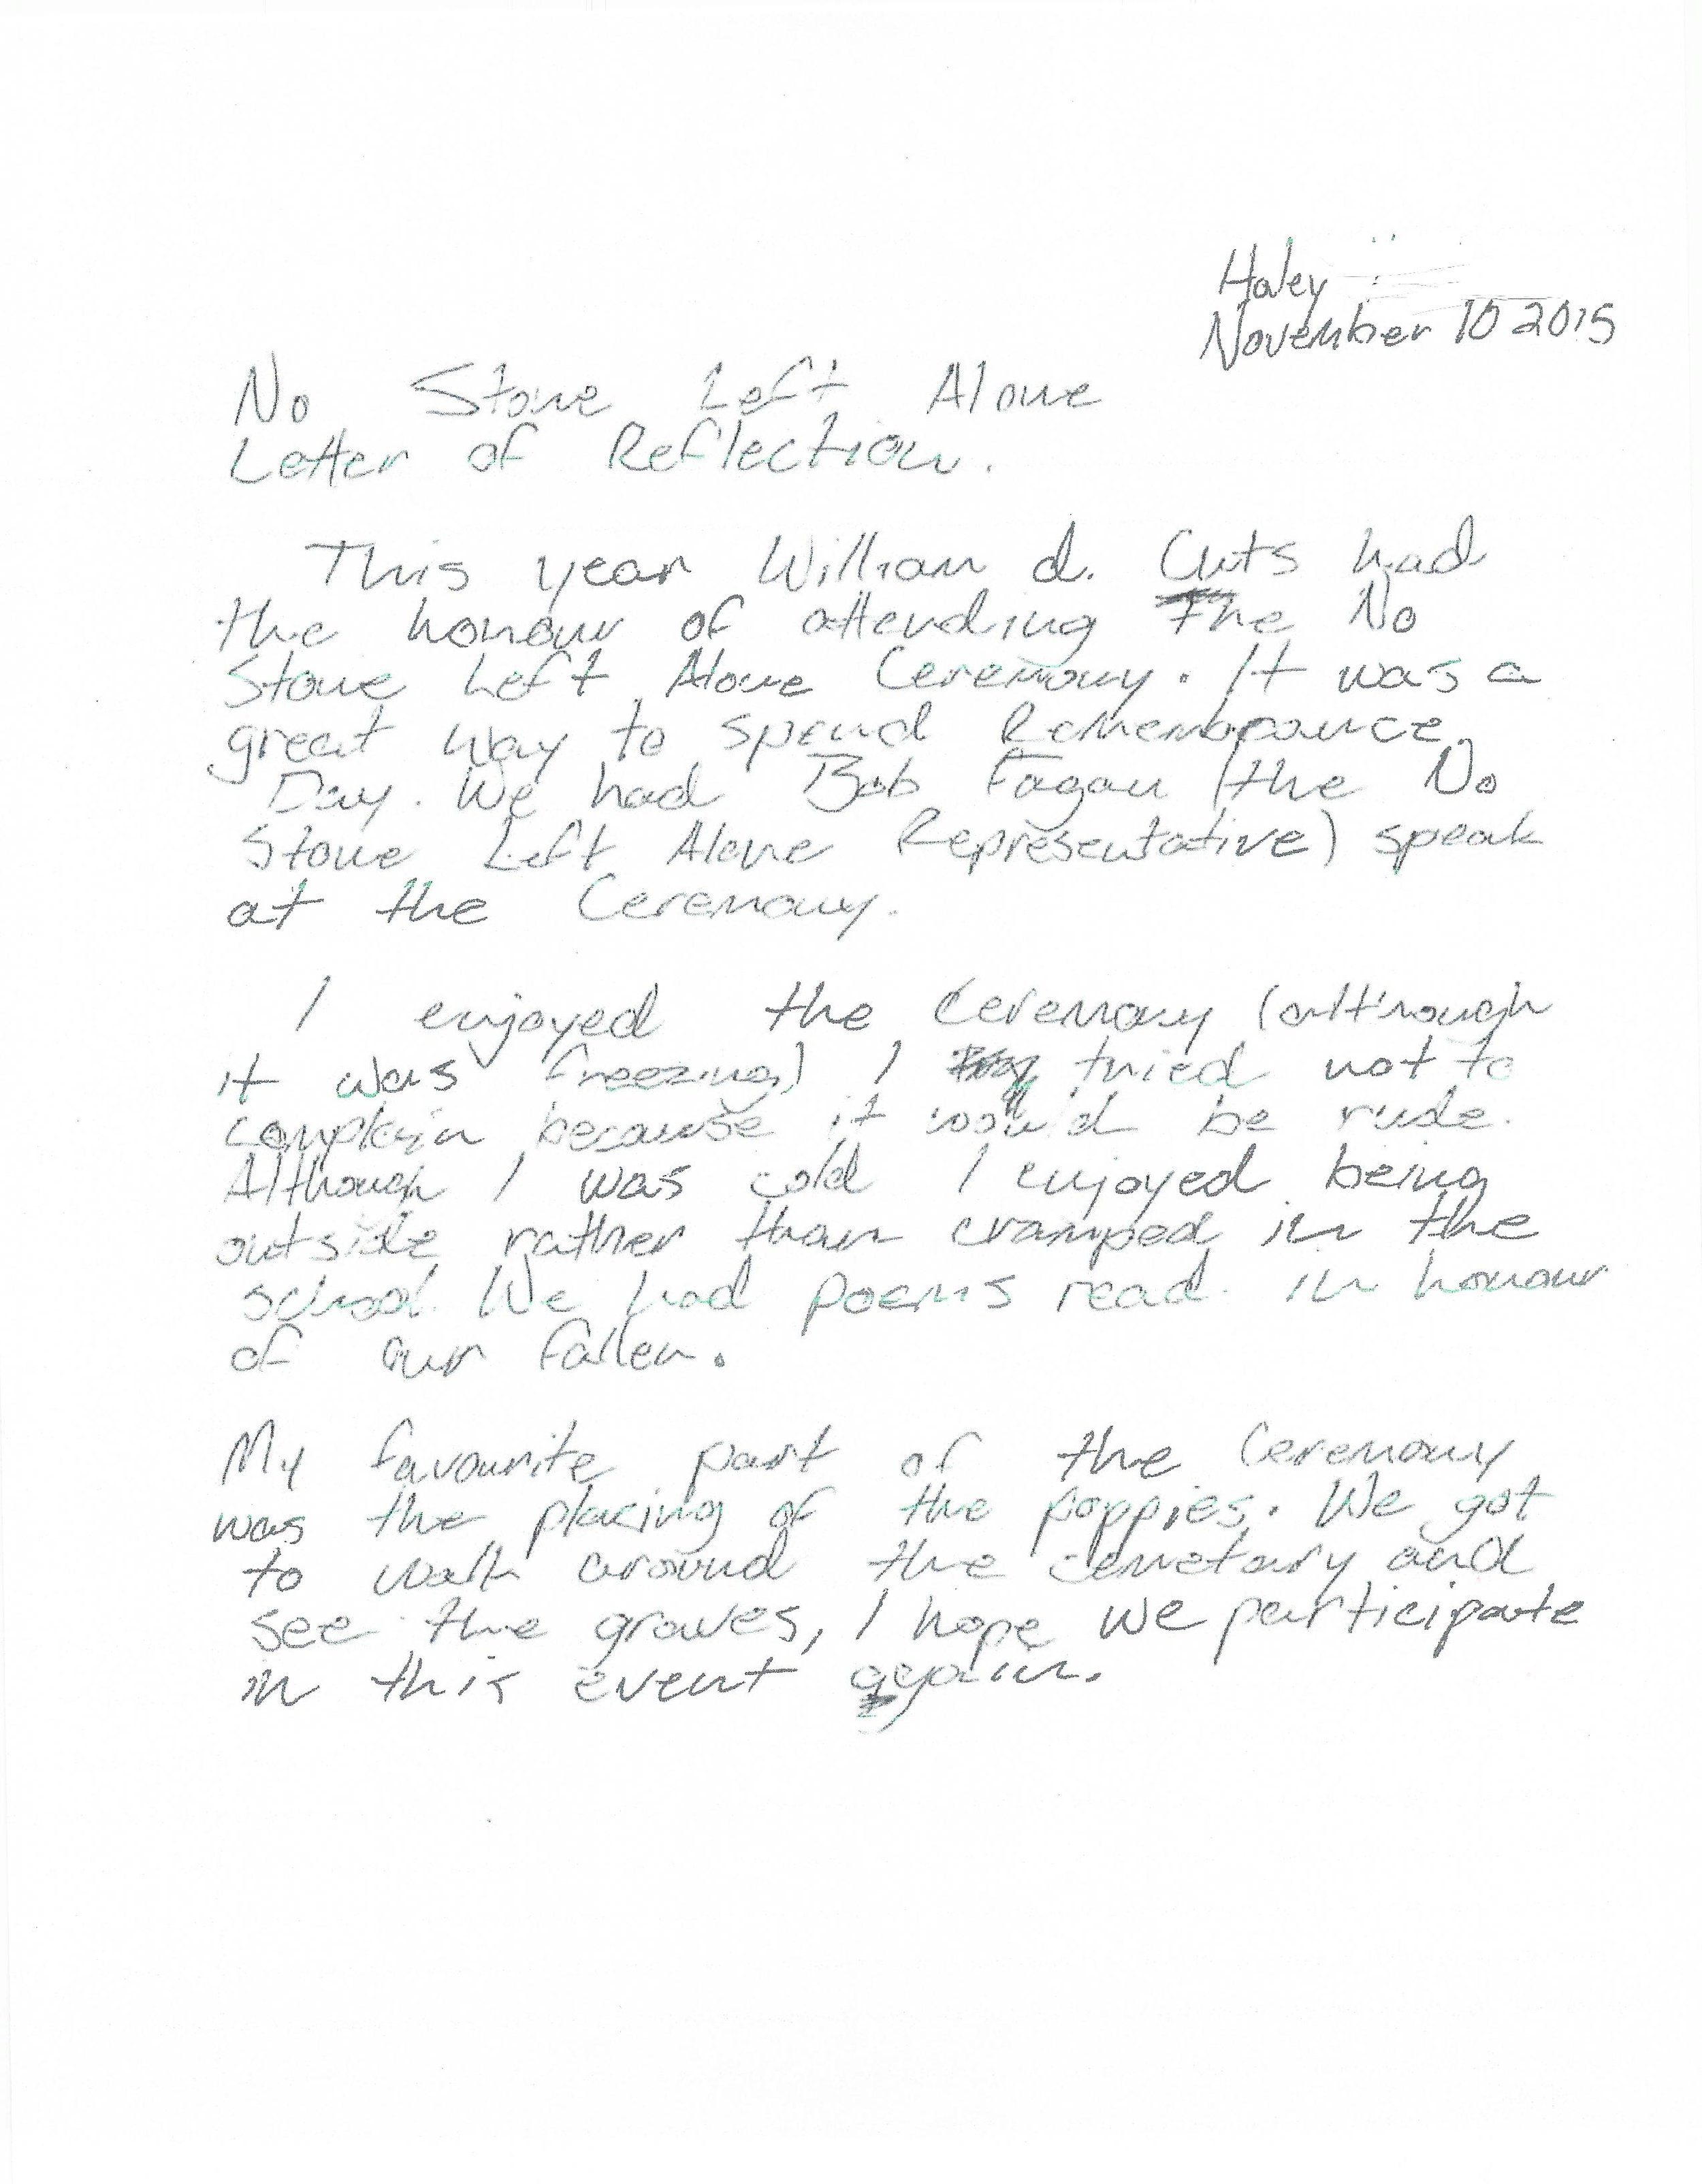 Haley
November 10 2015
No Stone Left Alone
Letter of Reflection.
This year William d. Cuts had
the honour of attending the No
Stone Left Alone Ceremony. It was a
great way to spend Remembrance
Day. We had Bob Fagan (the No
Stone Left Alone Representative) speak
at the Ceremony.
I enjoyed the Ceremony (although
it was freezing) I tried not to
complain because it would be rude.
Although I was cold I enjoyed being
outside rather than cramped in the
school. We had poems read in honour
of our fallen.
My favourite part of the Ceremony
was the placing of the poppies. We got
to walk around the cemetary and
see the graves, I hope we participate
in this event again.